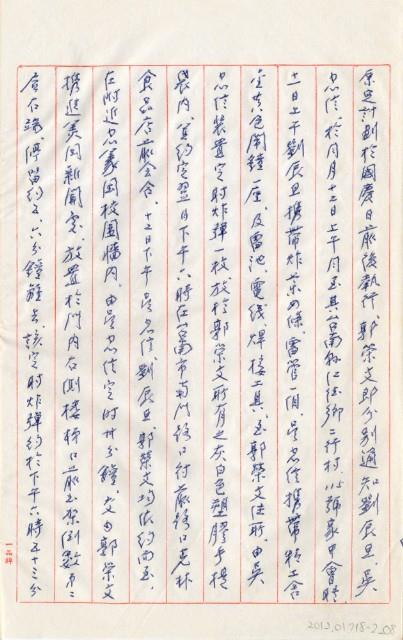 原定計劃於國慶日前後執行，郭榮文即分別通知劉辰旦、吳
忠信，於同月十二日上午同至其台南縣仁德鄉二行村，號家中會晤
十一日上午劉辰旦攜帶炸藥四條、雷管一個，吳忠信攜帶粉工含
金黃色鬧鐘一座，及電池、電線、焊接工具，至郭榮文住所，由吳
忠信裝置定時炸彈一枚，放於郭榮文所有之灰白色塑膠手提
袋內，並約定翌日下午六時在台南市南門路口行前路口克林
食品店前會合，十二日下午吳忠信、劉辰旦、郭榮文均依約而至，
在附近忠義國校圍牆內，由吳忠信定時卅分鐘，交由郭榮文
攜進美國新聞處，放置於門內右側樓梯口前至架倒數第二
層右端，停留約五、六分鐘離去，該定時炸彈約於下午六時五十三分
一品牌
2013.01718-2_08